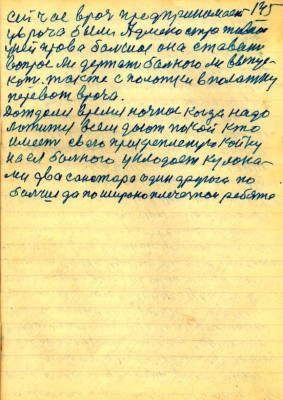 сейчас врач предпринимает 145
у врача были Админо стра тивные
прей права больные она ставит
вопрос ли держат больного ли выпус
кат. также с полотки в полатку
перевот врача.
Дотдели время ночное когда надо
ложити всем дают покой кто
имеет свою прикрепленную койку
на ел больного укладает кулока-
ми два санотара один другога по
больши да по широко плечезнои ребята